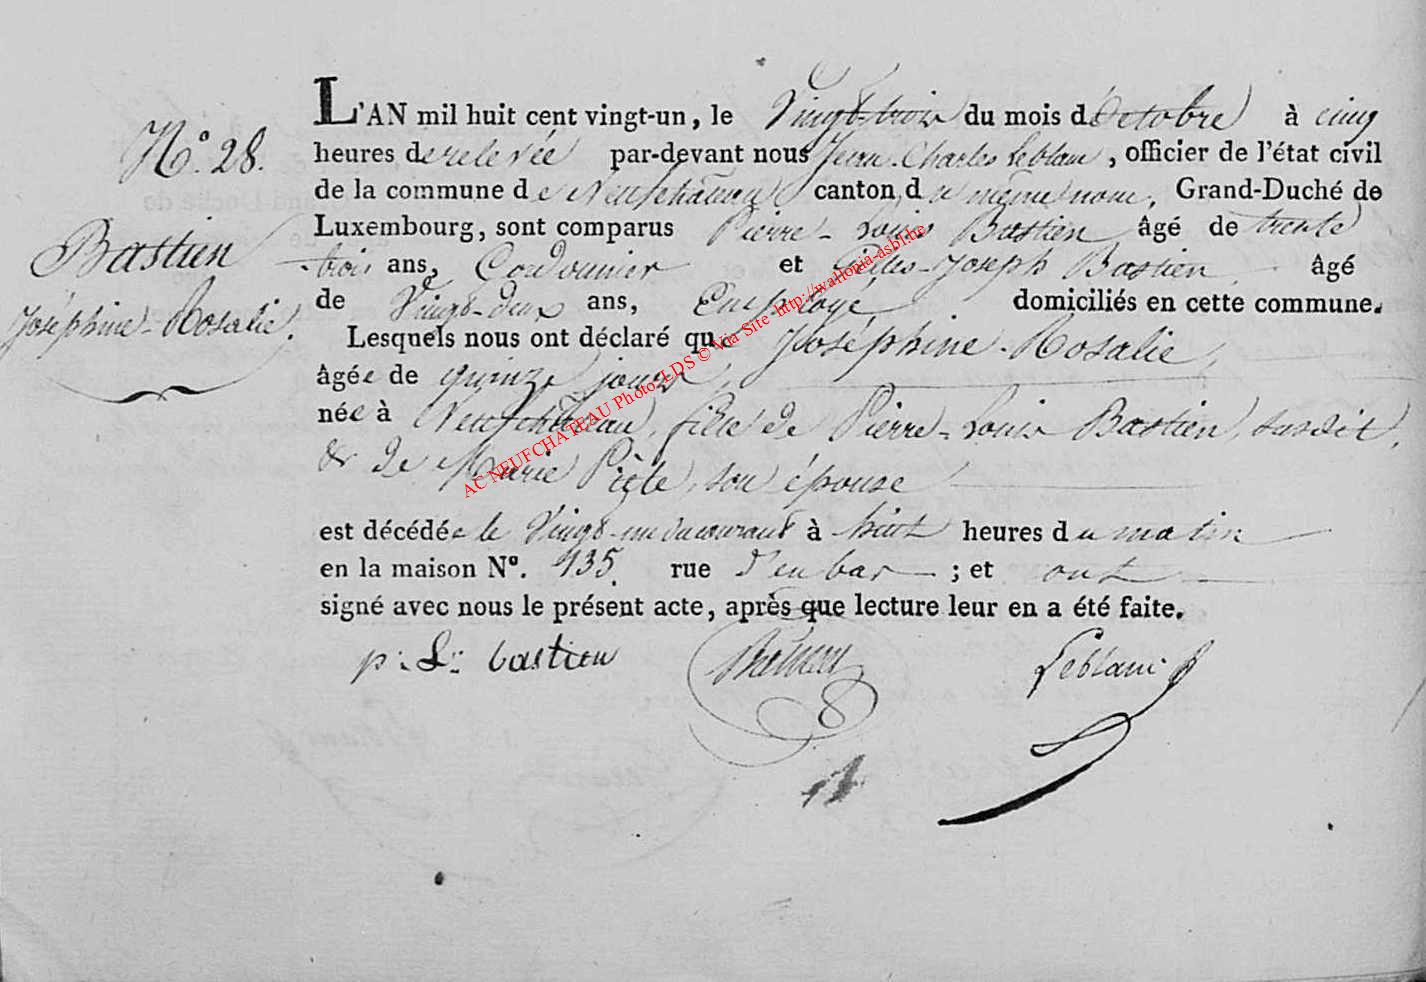 N.° 28.
Bastien
Joséphine-Rosalie.
L'AN mil huit cent vingt-un, le Vingt-trois du mois d'Octobre à cinq
heures de relevée par-devant nous Jean-Charles Leblanc, officier de l'état civil
de la commune de Neufchateau canton du même nom, Grand-Duché de
Luxembourg, sont comparus Pierre-Louis Bastien âgé de trente
-trois ans, Cordonnier et Gilles-Joseph Bastien âgé
de Vingt-deux ans, Employé domiciliés en cette commune.
Lesquels nous ont déclaré que Joséphine-Rosalie,
âgée de quinze jours,
née à Neufchateau, fille de Pierre-Louis Bastien, susdit,
& de Marie Piette, son épouse
est décédée le Vingt-un du courant à huit heures du matin
en la maison N°. 135. rue d'en bas ; et ont
signé avec nous le présent acte, après que lecture leur en a été faite.
p: L:: bastien Bastien Leblanc
AC NEUFCHATEAU Photo LDS © Via Site http://wallonia-asbl.be